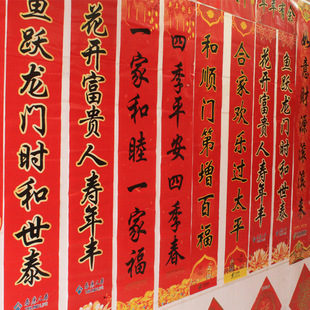 鱼跃龙门时和世泰
花开富贵人寿年丰
一家和睦一家福
四季平安四季春
和顺门第增百福
合家欢乐过太平
花开富贵人寿年丰
鱼跃龙门时和世泰
如意财源滚滚来